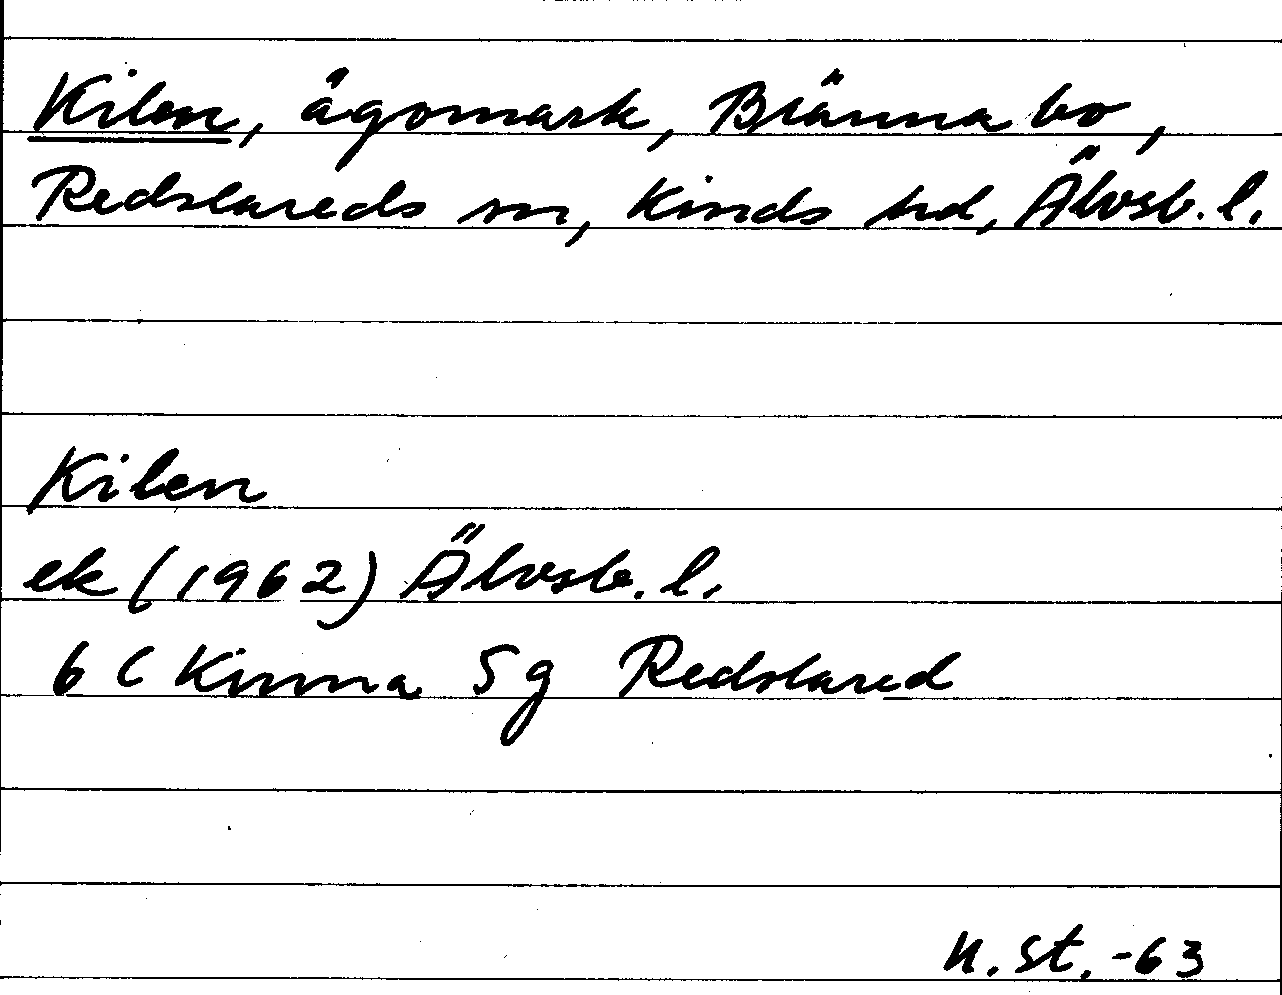 Kilen, ägomark, Brännabo,
Redslareds sn, Kinds hd, Älvsb. l.
Kilen
ek (1962) Älvsb. l.
6 C Kinna 5 g Redslared
N. St. -63